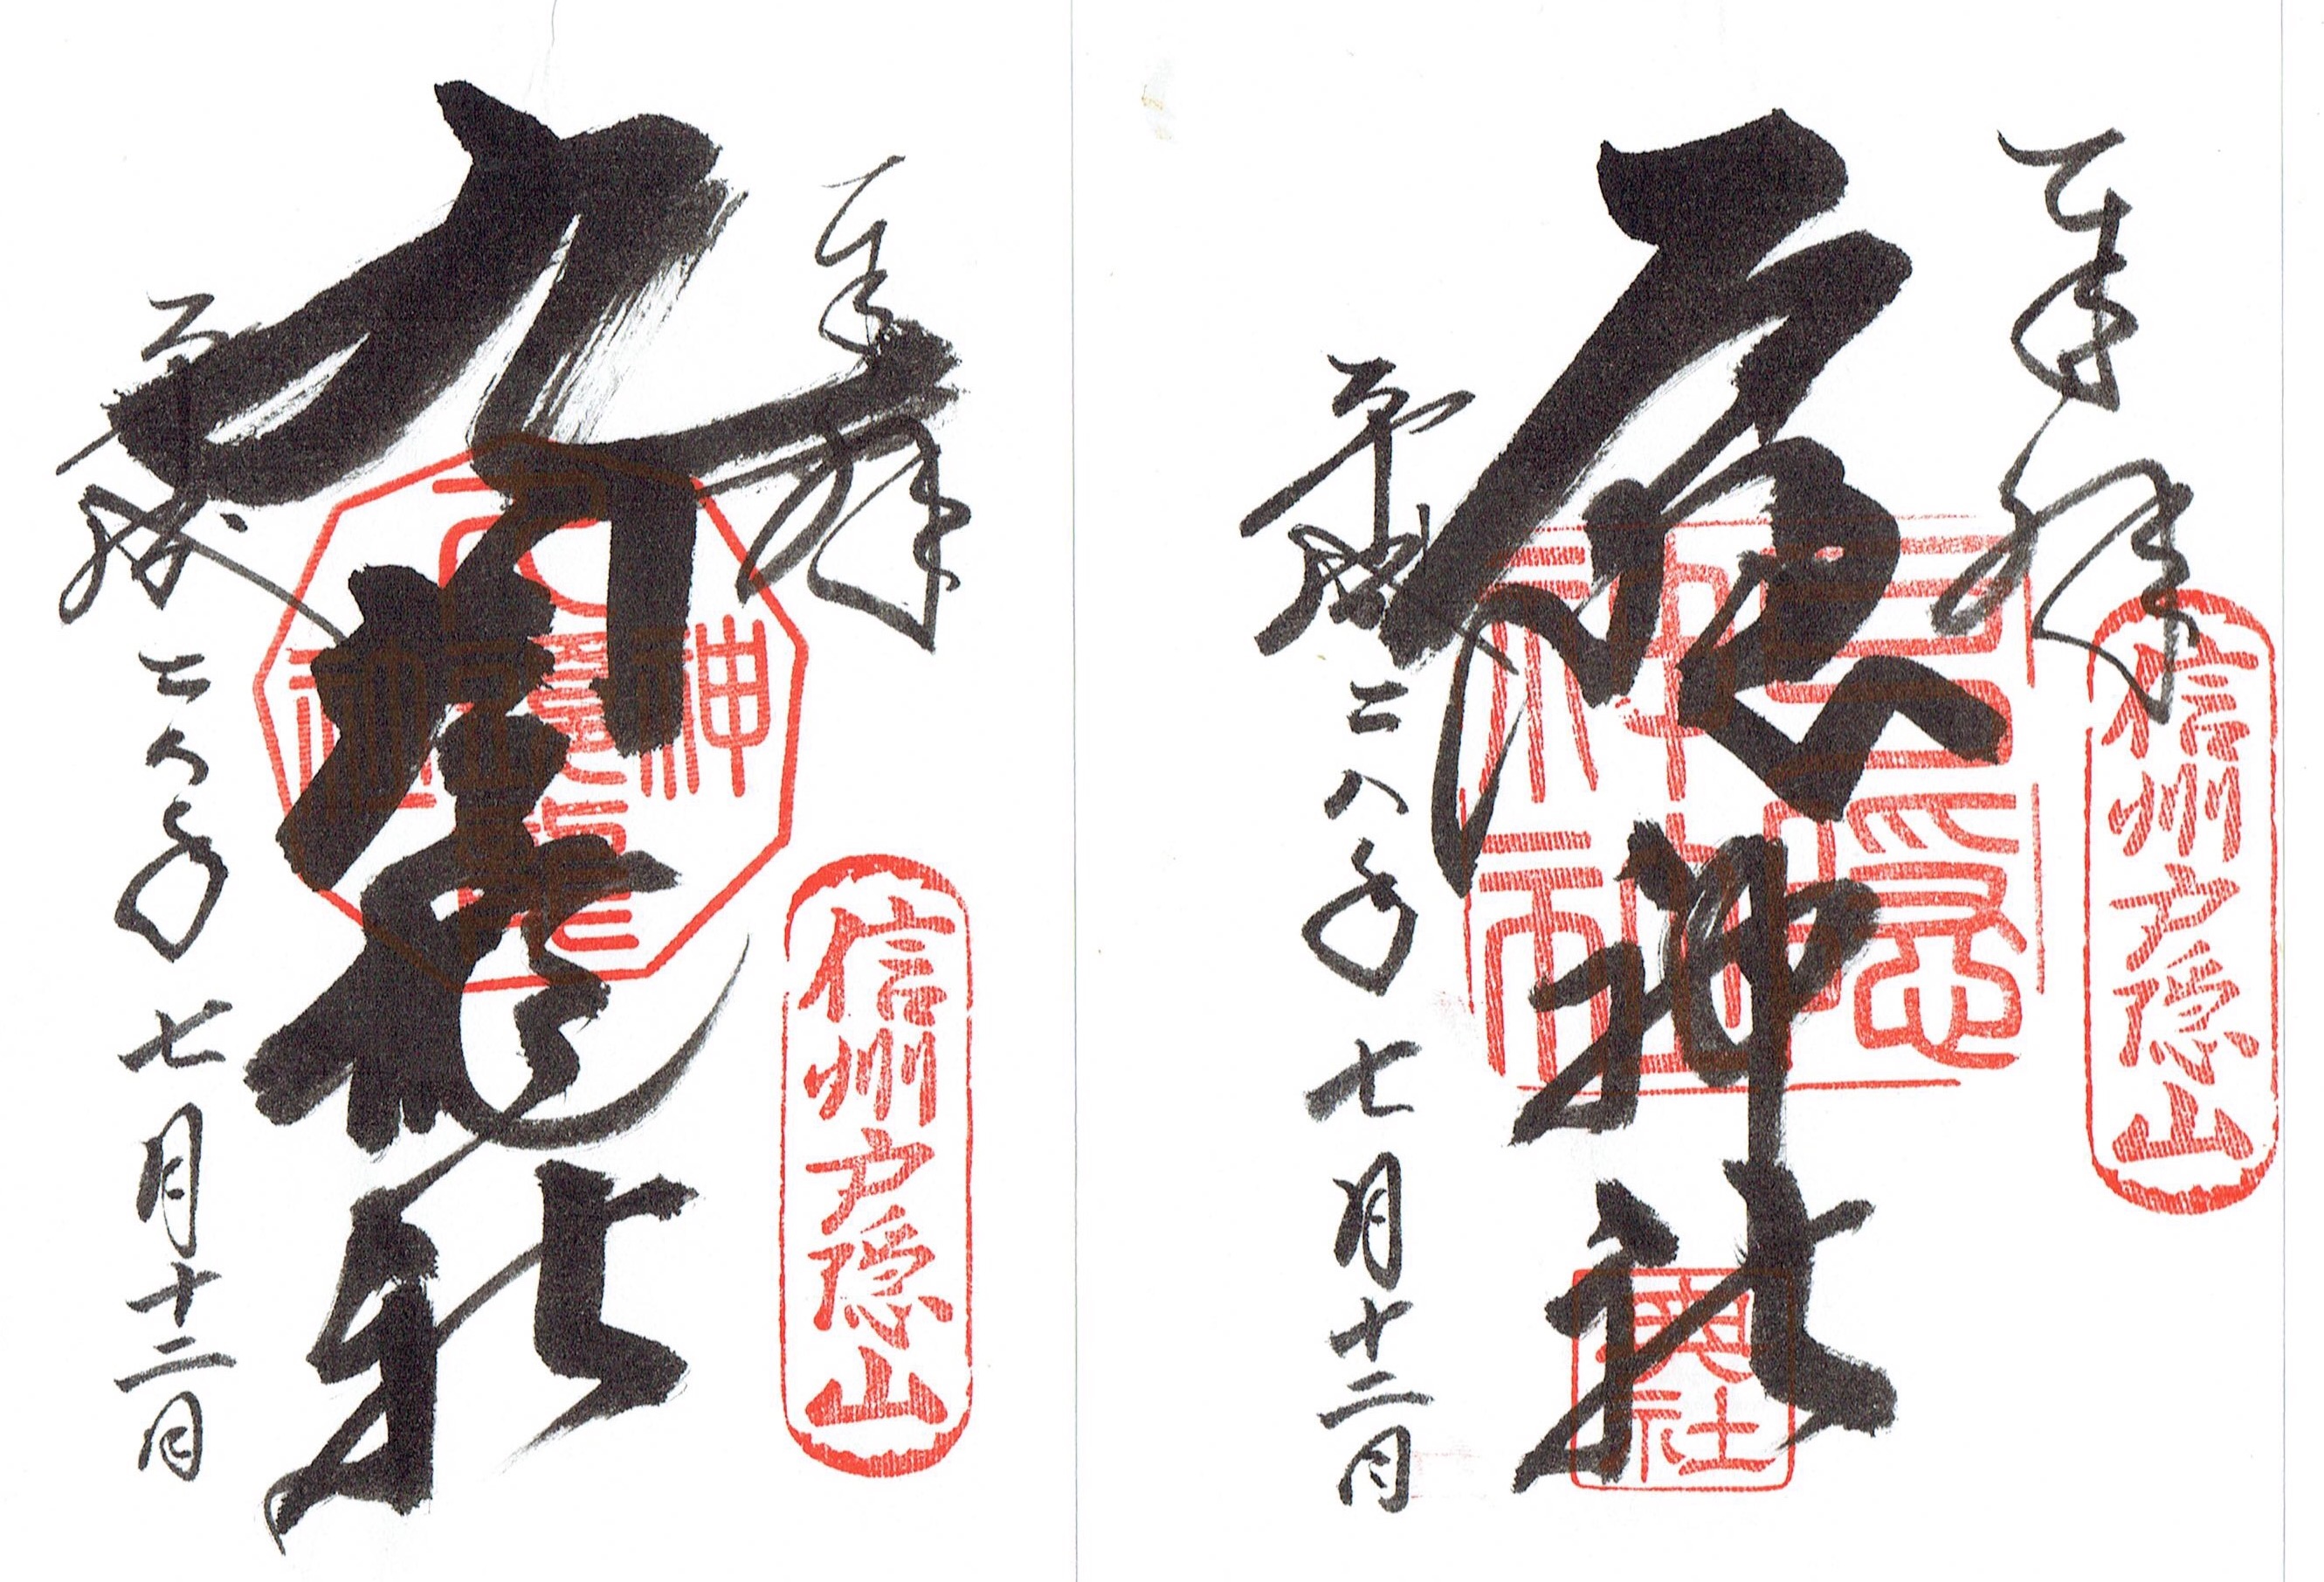 奉拝
信州戸隠山
戸隠神社
戸隠神社
奥社
平成二八年七月十二日
奉拝
信州戸隠山
九頭龍社
神社
平成二八年七月十二日